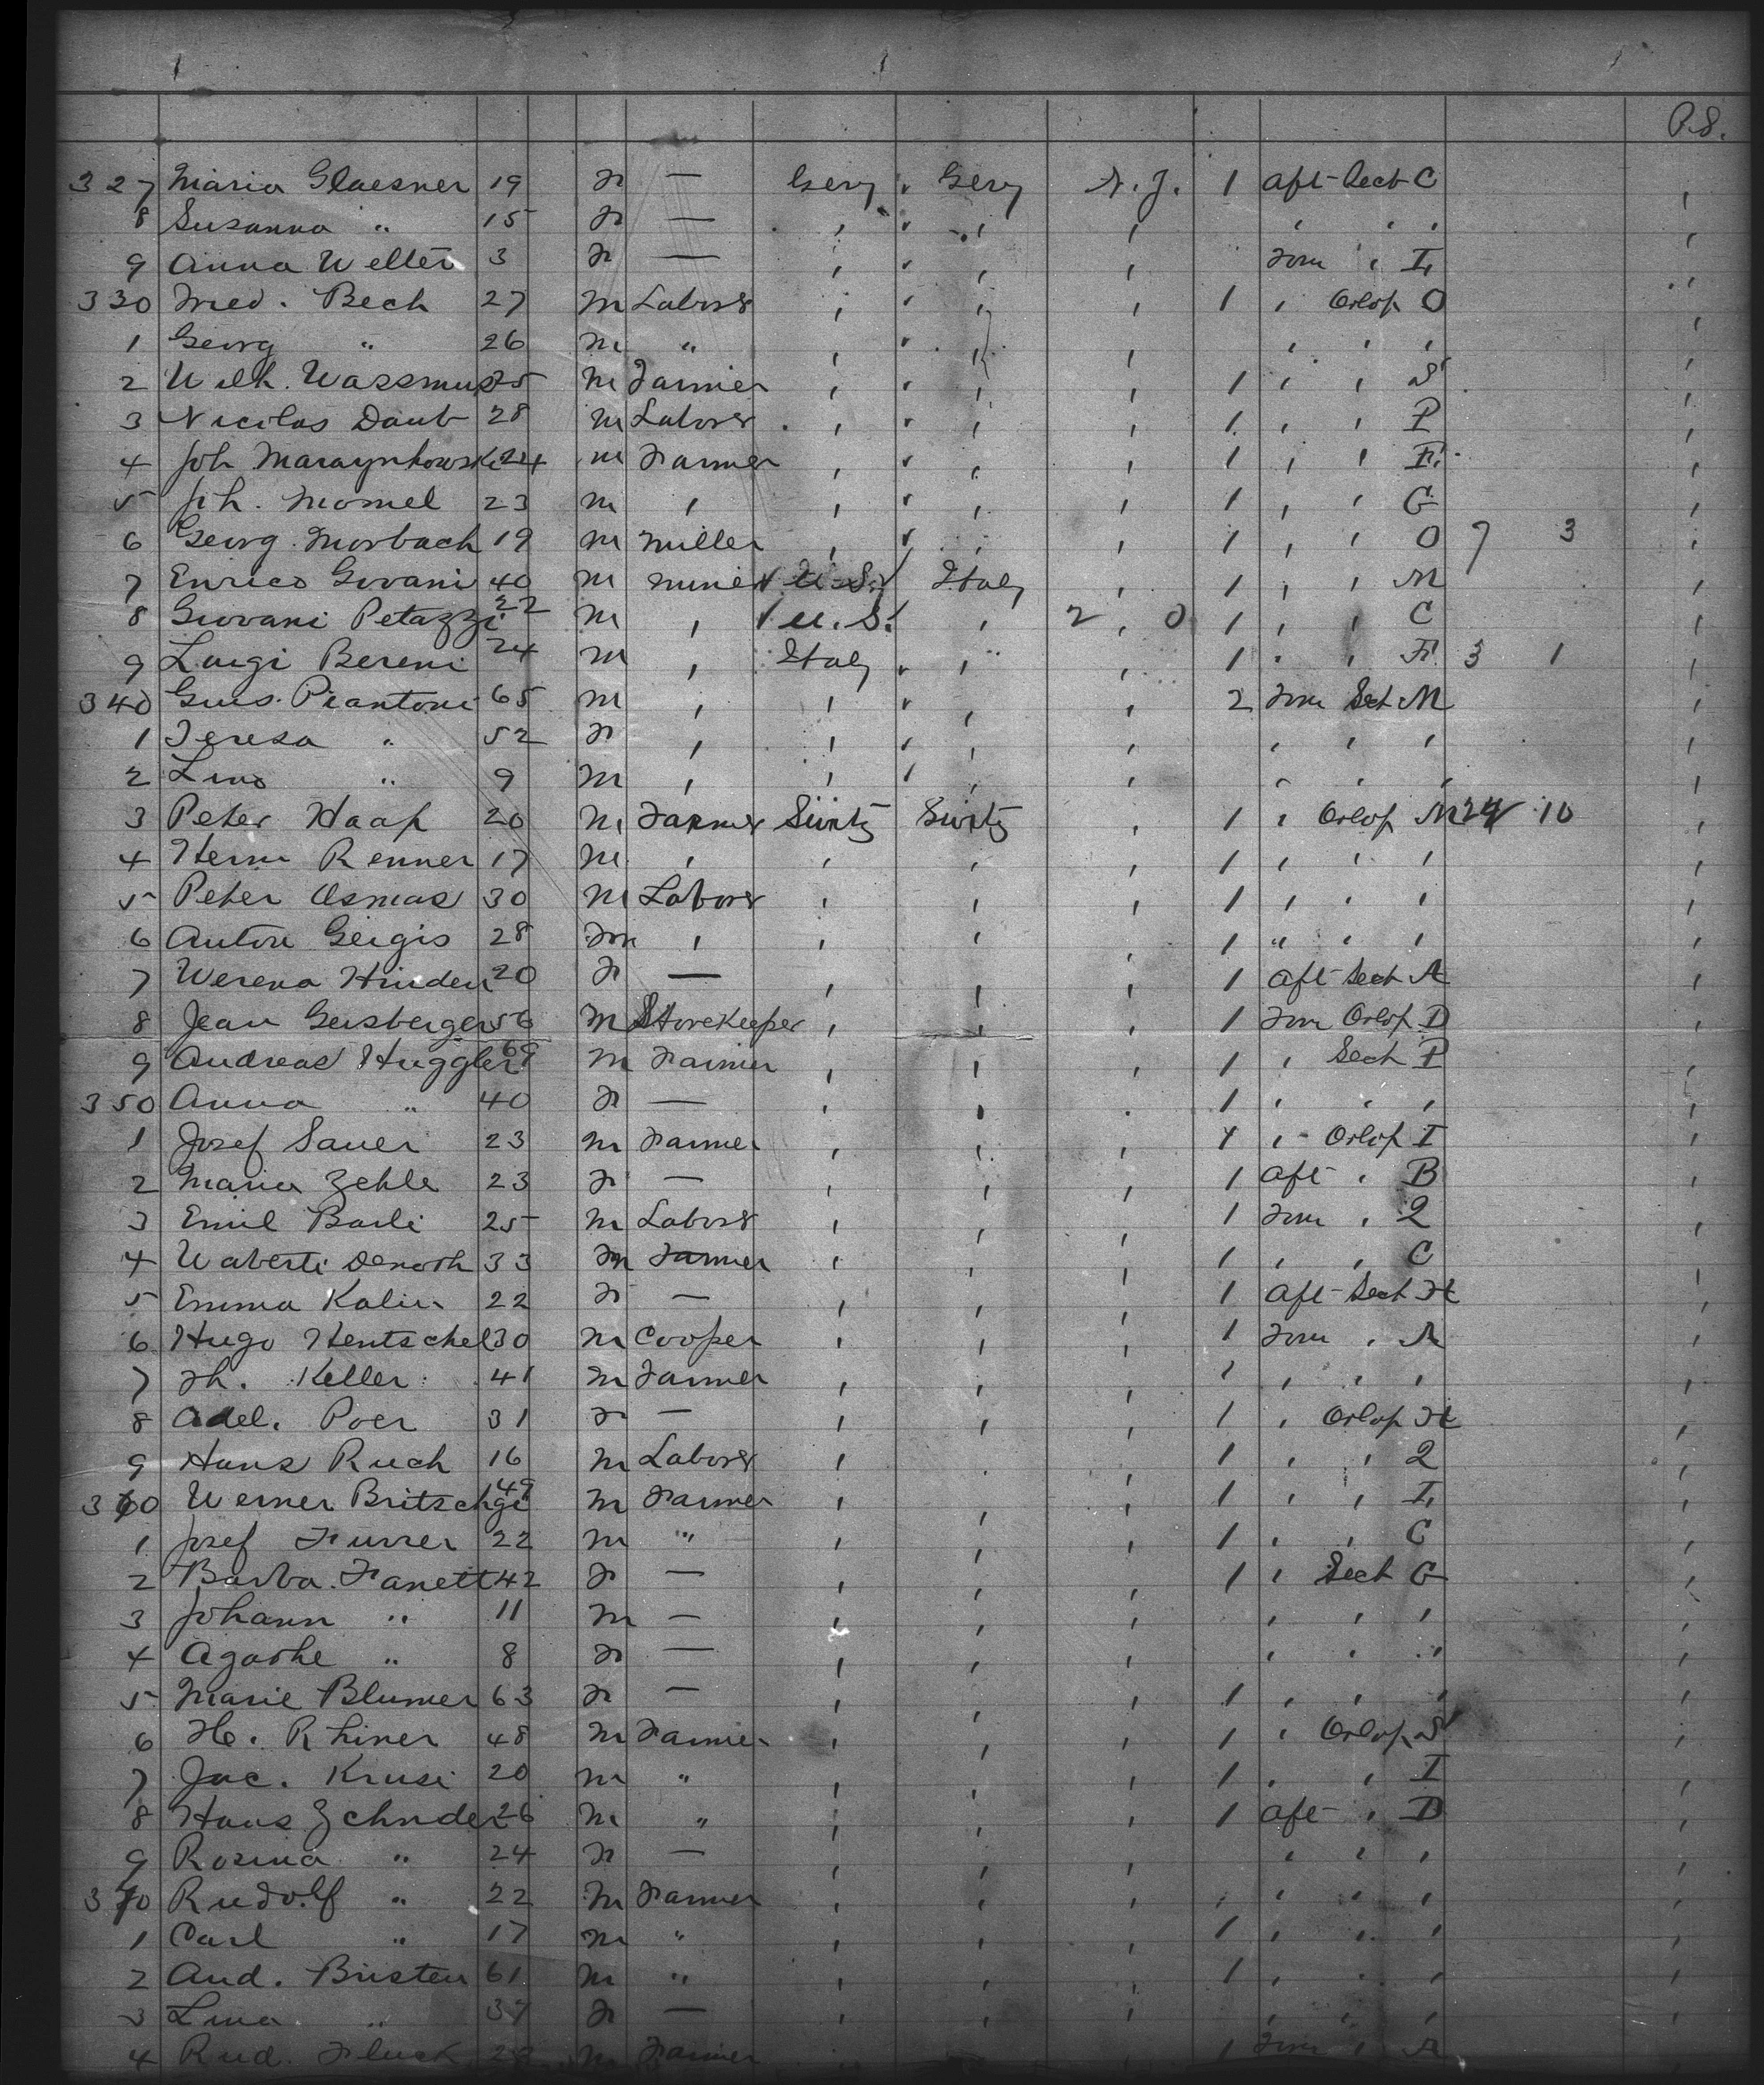 P.S.
327 Maria Glaesner 19 F — Gery " Gery N.Y. 1 Aft Sect C "
8 Susanna " 15 F — " " " " " " " "
9 Anna Welter 3 F — " " " " Forw " I "
330 Fried. Bech 27 M Laborer " " " " 1 " Orlop O "
1 Georg " 26 M " " " " " " " " "
2 Wilh. Wassmus 25 M Farmer " " " " 1 " " S "
3 Nicolas Daub 28 M Laborer " " " " 1 " " P "
4 Joh 24 M Farmer " " " " 1 " " F "
5 Joh. Momel 23 M " " " " " 1 " " G "
6 Georg Morbach 19 M Miller " " " " 1 " " O 7 3 "
7 Enrico Govani 40 M Miner U.S. Italy " 1 " " M "
8 Giovani Petazzi 22 M " U.S. " 2 " 0 1 " " C "
9 Luigi Bereni 24 M " Italy " " " 1 " " F 3 1 "
340 Gius. Piantoni 65 M " " " " " 2 Forw Sect M "
1 Teresa " 52 F " " " " " " " " "
2 Lino " 9 M " " " " " " " " "
3 Peter Haap 20 M Farmer Switz Switz " 1 " Orlop M 24 10 "
4 Herm Renner 17 M " " " " 1 " " " "
5 Peter Osmas 30 M Laborer " " " 1 " " " "
6 Anton Geigis 28 M " " " " 1 " " " "
7 Werena Hinden 20 F — " " " 1 Aft Sect A "
8 Jean Gersberger 56 M Storekeeper " " " 1 Forw Orlop D "
9 Andreas Huggler 69 M Farmer " " " 1 " Sect P "
350 Anna " 40 F — " " " 1 " " " "
1 Josef Sauer 23 M Farmer " " " 1 " Orlop I "
2 Maria Zehle 23 F — " " " 1 Aft " B "
3 Emil Barli 25 M Laborer " " " 1 Forw " Q "
4 Waberti 33 M Farmer " " " 1 " " C "
5 Emma Kalin 22 F — " " " 1 Aft Sect H "
6 Hugo Hentschel 30 M Cooper " " " 1 Forw " A "
7 Th. Keller 41 M Farmer " " " 1 " " " "
8 Adel. Poer 31 F — " " " 1 " Orlop H "
9 Hans Ruch 16 M Laborer " " " 1 " " Q "
360 Werner Britschgi 49 M Farmer " " " 1 " " I "
1 Josef Furrer 22 M " " " " 1 " " C "
2 Barba. Fanett 42 F — " " " 1 " Sect G "
3 Johann " 11 M — " " " " " " "
4 Agathe " 8 F — " " " " " " "
5 Marie Blumer 63 F — " " " 1 " " " "
6 He. Rhiner 48 M Farmer " " " 1 " Orlop S "
7 Jac. Krusi 20 M " " " " 1 " " I "
8 Hans Zehnder 26 M " " " " 1 Aft " D "
9 Rosina " 24 F — " " " " " " "
370 Rudolf " 22 M Farmer " " " " " " " "
1 Carl " 17 M " " " " 1 " " " "
2 And. Bristen 61 M " " " " 1 " " " "
3 Lina " 37 F — " " " " " " "
4 Rud. Fluck M Farmer 1 Forw " A "